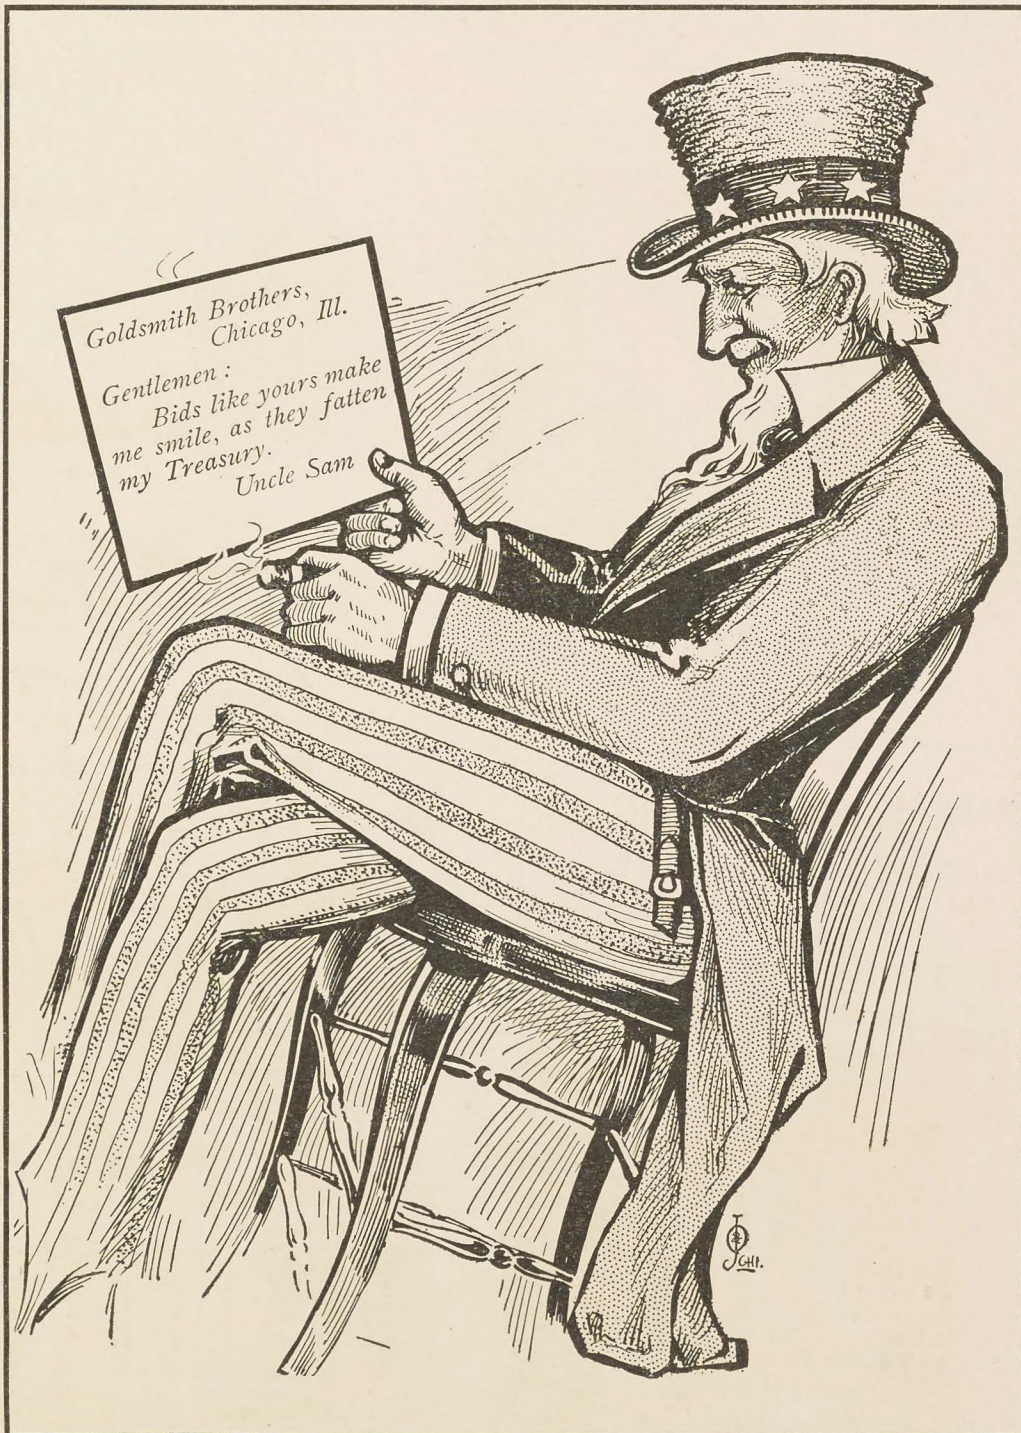 Goldsmith Brothers,
Chicago, Ill.
Gentlemen :
Bids like yours make
me smile, as they fatten
my Treasury.
Uncle Sam
CHI.